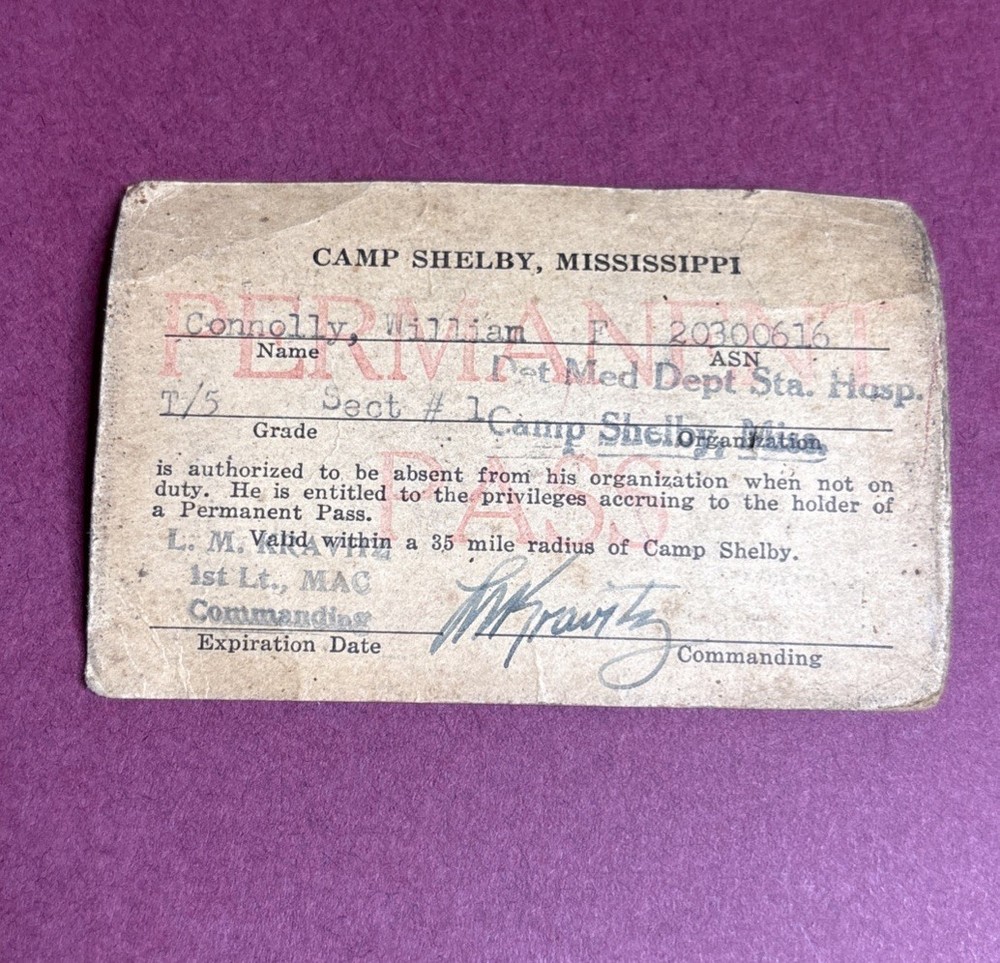 CAMP SHELBY, MISSISSIPPI
PERMANENT
Connolly, William F 20300616
Name ASN
Det Med Dept Sta. Hosp.
T/5 Sect # 1 Camp Shelby, Miss.
Grade Organization
PASS
is authorized to be absent from his organization when not on
duty. He is entitled to the privileges accruing to the holder of
a Permanent Pass.
Valid within a 35 mile radius of Camp Shelby.
L. M. KRAVITZ
1st Lt., MAC
Commanding
LM Kravitz
Expiration Date Commanding